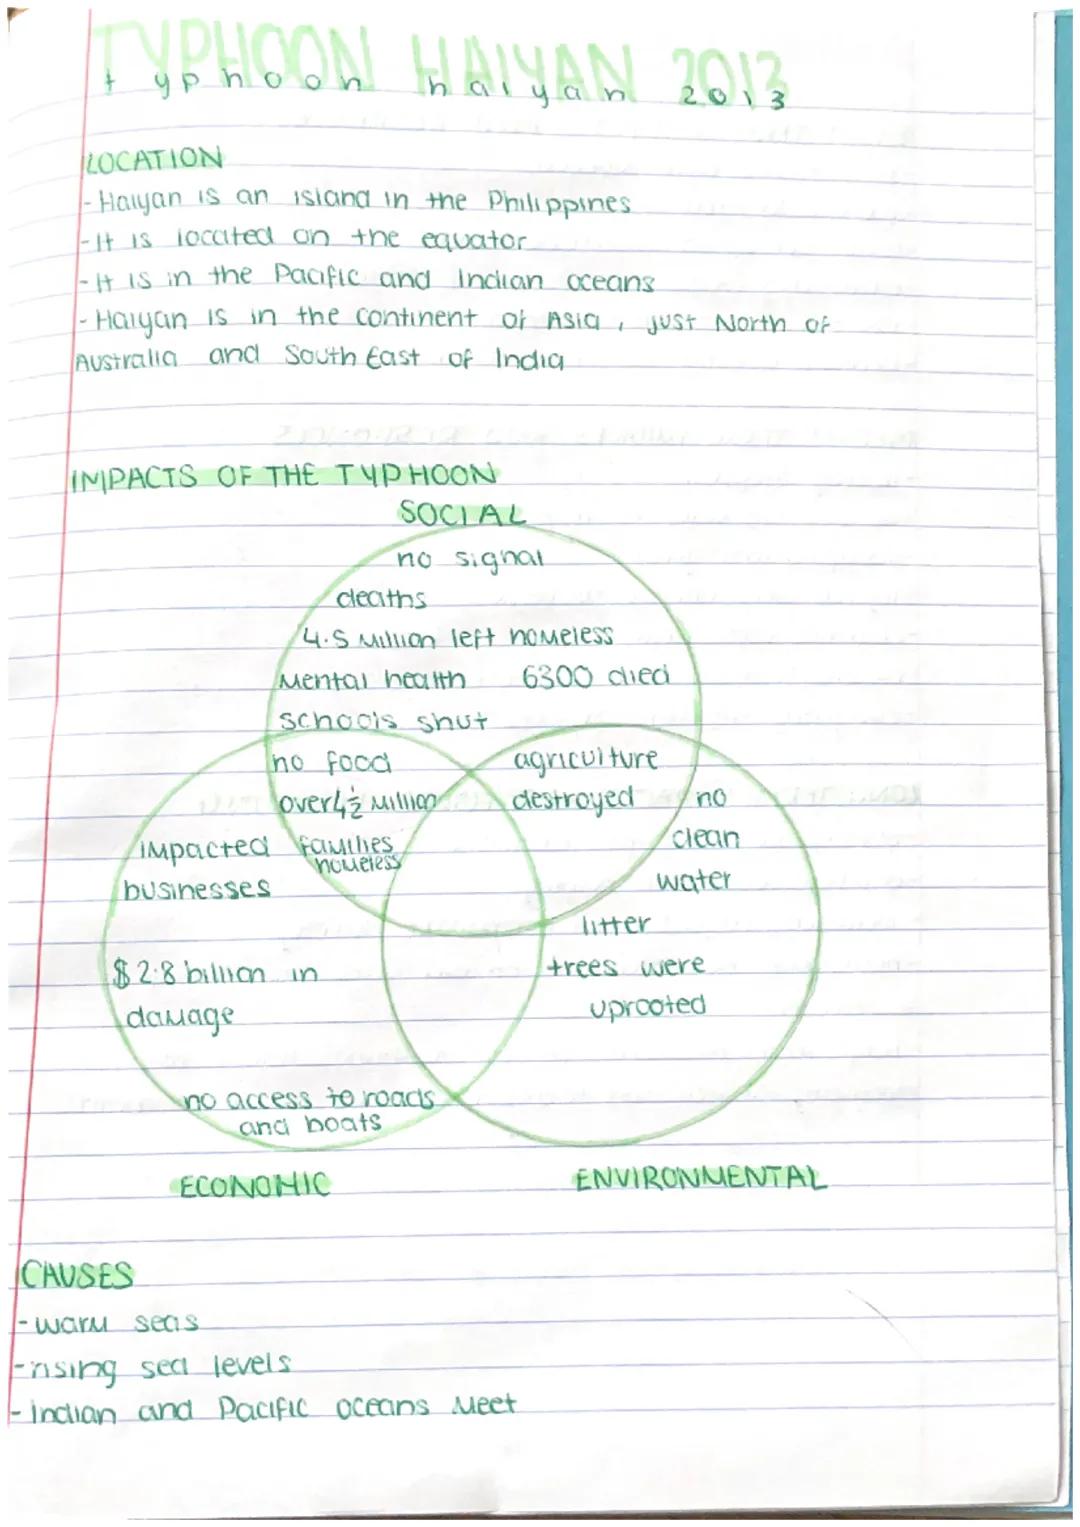 TYPHOON HAIYAN 2013
typhoon haiyan 2013
LOCATION
- Haiyan is an island in the Philippines
- It is located on the equator
- It is in the Pacific and Indian oceans
- Haiyan is in the continent of Asia, just North of
Australia and South East of India
IMPACTS OF THE TYPHOON
SOCIAL
no signal
deaths
4.5 million left homeless
Mental health 6300 died
schools shut
no food
over 4½ million
families
homeless
agriculture
destroyed
no
clean
water
litter
trees were
uprooted
impacted
businesses
$2.8 billion in
damage
no access to roads
and boats
ECONOMIC
ENVIRONMENTAL
CAUSES
- warm seas
- rising sea levels
- Indian and Pacific oceans Meet